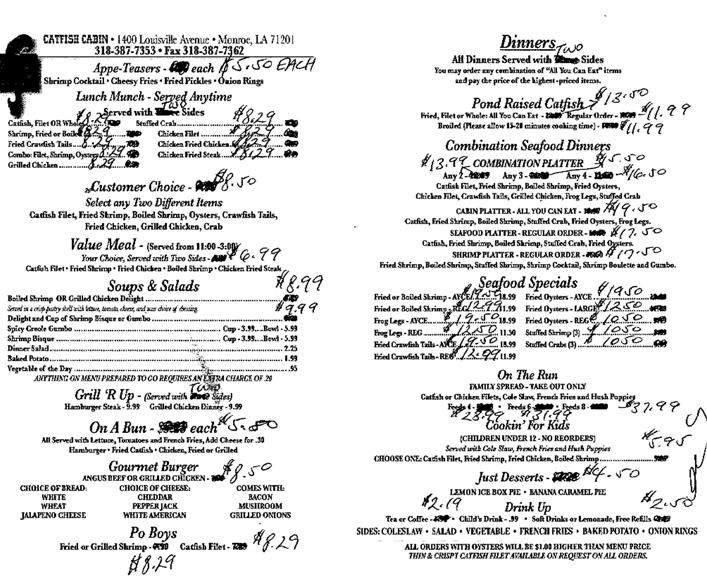 CATFISH CABIN • 1400 Louisville Avenue • Monroe, LA 71201
318-387-7353 • Fax 318-387-7362
Appe-Teasers - each $5.50 EACH
Shrimp Cocktail • Cheesy Fries • Fried Pickles • Onion Rings
Lunch Munch - Served Anytime
Served with Two Sides $8.29
Catfish, Filet OR Whole 8.29 Stuffed Crab
Shrimp, Fried or Boiled 8.29 Chicken Filet $8.29
Fried Crawfish Tails 8.29 Chicken Fried Chicken 8.29
Combo: Filet, Shrimp, Oysters 8.29 Chicken Fried Steak 8.29
Grilled Chicken 8.29
Customer Choice - $8.50
Select any Two Different Items
Catfish Filet, Fried Shrimp, Boiled Shrimp, Oysters, Crawfish Tails,
Fried Chicken, Grilled Chicken, Crab
Value Meal - (Served from 11:00 -3:00)
Your Choice, Served with Two Sides - $6.99
Catfish Filet • Fried Shrimp • Fried Chicken • Boiled Shrimp • Chicken Fried Steak
Soups & Salads $8.99
Boiled Shrimp OR Grilled Chicken Delight
Served in a crisp pastry shell with lettuce, tomato, cheese, and your choice of dressing. $9.99
Delight and Cup of Shrimp Bisque or Gumbo
Spicy Creole Gumbo Cup - 3.99....Bowl - 5.99
Shrimp Bisque Cup - 3.99....Bowl - 5.99
Dinner Salad 2.25
Baked Potato 1.99
Vegetable of the Day .95
ANYTHING ON MENU PREPARED TO GO REQUIRES AN EXTRA CHARGE OF .20
Grill 'R Up - (Served with Two Sides)
Hamburger Steak - 9.99 Grilled Chicken Dinner - 9.99
On A Bun - each $5.80
All Served with Lettuce, Tomatoes and French Fries, Add Cheese for .30
Hamburger • Fried Catfish • Chicken, Fried or Grilled
Gourmet Burger $8.50
ANGUS BEEF OR GRILLED CHICKEN -
CHOICE OF BREAD: CHOICE OF CHEESE: COMES WITH:
WHITE CHEDDAR BACON
WHEAT PEPPER JACK MUSHROOM
JALAPENO CHEESE WHITE AMERICAN GRILLED ONIONS
Po Boys
Fried or Grilled Shrimp - Catfish Filet - $8.29
$8.29
Dinners
All Dinners Served with Two Sides
You may order any combination of "All You Can Eat" items
and pay the price of the highest-priced items.
Pond Raised Catfish $13.50
Fried, Filet or Whole: All You Can Eat - Regular Order - $11.99
Broiled (Please allow 15-20 minutes cooking time) - $11.99
Combination Seafood Dinners
$13.99 COMBINATION PLATTER $15.50
Any 2 - Any 3 - Any 4 - $16.50
Catfish Filet, Fried Shrimp, Boiled Shrimp, Fried Oysters,
Chicken Filet, Crawfish Tails, Grilled Chicken, Frog Legs, Stuffed Crab
CABIN PLATTER - ALL YOU CAN EAT - $19.50
Catfish, Fried Shrimp, Boiled Shrimp, Stuffed Crab, Fried Oysters, Frog Legs.
SEAFOOD PLATTER - REGULAR ORDER - $17.50
Catfish, Fried Shrimp, Boiled Shrimp, Stuffed Crab, Fried Oysters.
SHRIMP PLATTER - REGULAR ORDER - $17.50
Fried Shrimp, Boiled Shrimp, Stuffed Shrimp, Shrimp Cocktail, Shrimp Boulette and Gumbo.
Seafood Specials
Fried or Boiled Shrimp - AYCE 18.99 Fried Oysters - AYCE $19.50
Fried or Boiled Shrimp - REG 11.99 Fried Oysters - LARGE
Frog Legs - AYCE 18.99 Fried Oysters - REG 10.50
Frog Legs - REG 12.50 11.50 Stuffed Shrimp (3) 10.50
Fried Crawfish Tails - AYCE 18.99 Stuffed Crabs (3) 10.50
Fried Crawfish Tails - REG 12.99 11.99
On The Run
FAMILY SPREAD - TAKE OUT ONLY
Catfish or Chicken Filets, Cole Slaw, French Fries and Hush Puppies
Feeds 4 - Feeds 6 - Feeds 8 - $37.99
Cookin' For Kids
(CHILDREN UNDER 12 - NO REORDERS) $5.95
Served with Cole Slaw, French Fries and Hush Puppies
CHOOSE ONE: Catfish Filet, Fried Shrimp, Fried Chicken, Boiled Shrimp
Just Desserts - $4.50
LEMON ICE BOX PIE • BANANA CARAMEL PIE
$2.19 Drink Up $2.50
Tea or Coffee - • Child's Drink - .99 • Soft Drinks or Lemonade, Free Refills
SIDES: COLESLAW • SALAD • VEGETABLE • FRENCH FRIES • BAKED POTATO • ONION RINGS
ALL ORDERS WITH OYSTERS WILL BE $1.00 HIGHER THAN MENU PRICE
THIN & CRISPY CATFISH FILET AVAILABLE ON REQUEST ON ALL ORDERS.